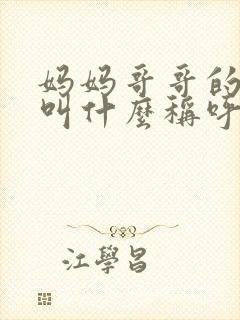 妈妈哥哥的
叫什麼稱呼
江學昌